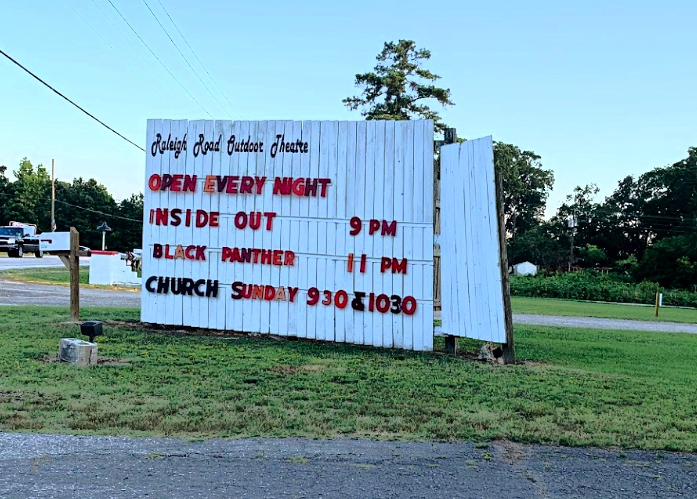 Raleigh Road Outdoor Theatre
OPEN EVERY NIGHT
INSIDE OUT 9 PM
BLACK PANTHER 11 PM
CHURCH SUNDAY 930 & 1030